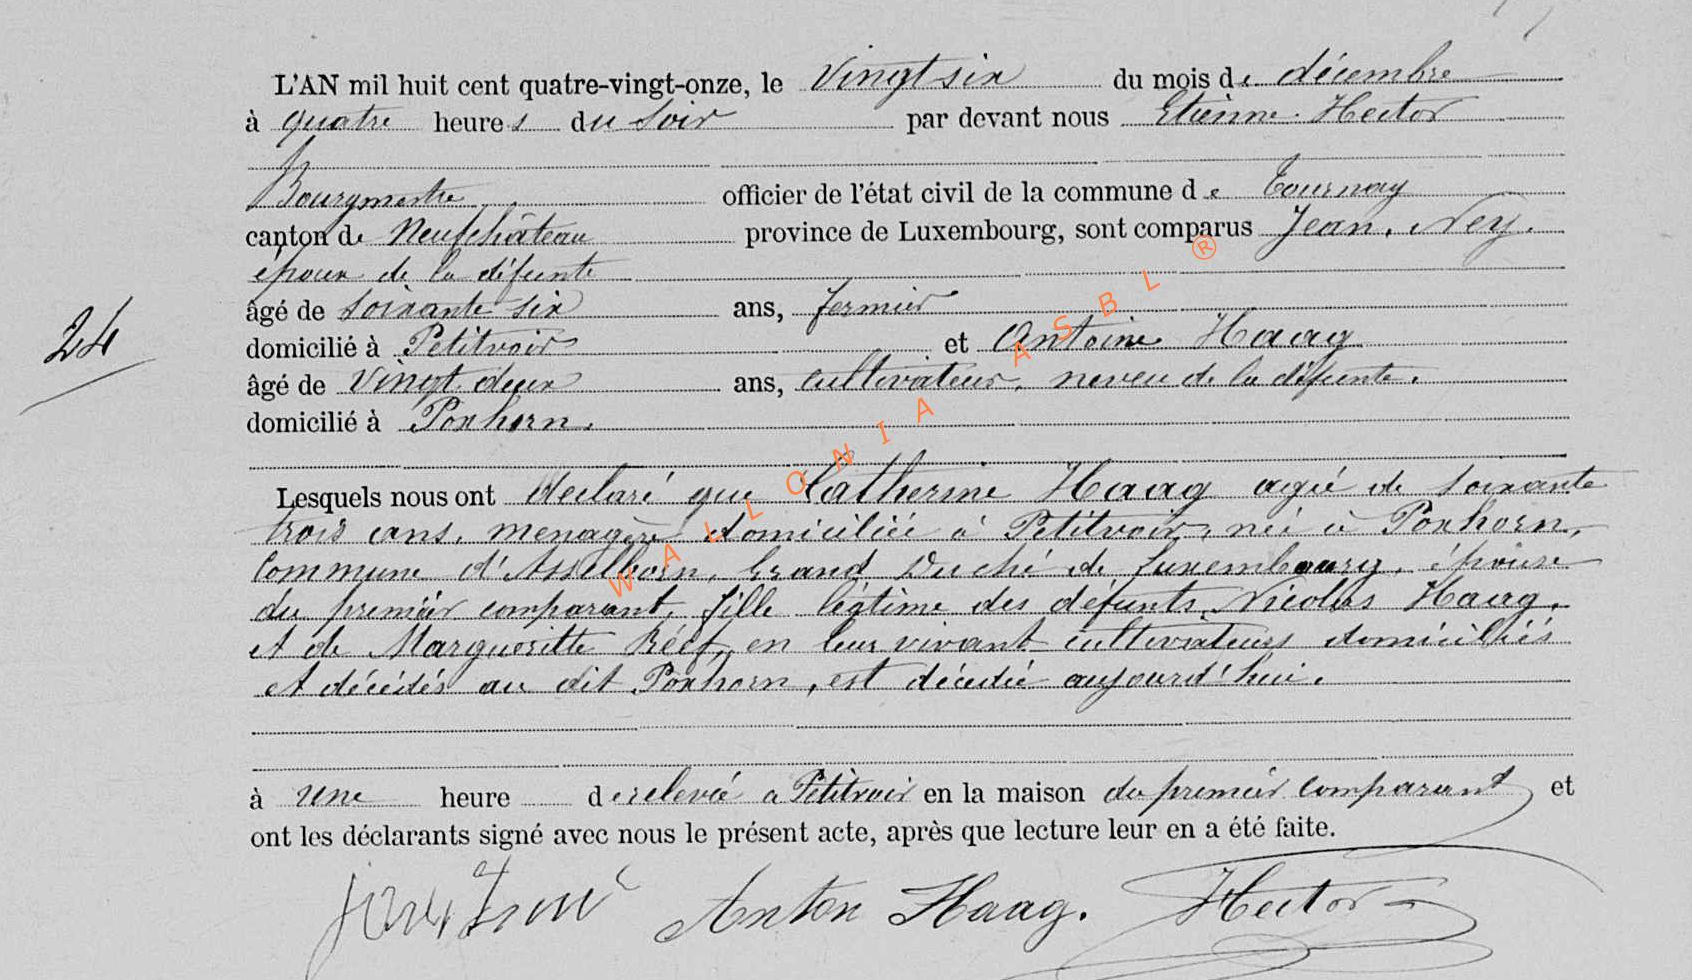 L'AN mil huit cent quatre-vingt-onze, le Vingt six du mois de décembre
à quatre heures du soir par devant nous Etienne Hector
Bourgmestre officier de l'état civil de la commune de Tournay
canton de Neufchâteau province de Luxembourg, sont comparus Jean. Ney.
époux de la défunte
âgé de soixante six ans, fermier
24
domicilié à Petitvoir et Antoine Haag
âgé de Vingt deux ans, cultivateur, neveu de la défunte.
domicilié à Poxhorn.
Lesquels nous ont déclaré que Catherine Haag agié de soixante
trois ans, menagère domiciliée à Petitvoir, née à Poxhorn,
Commune d'Asselborn, Grand Duché de Luxembourg, épouse
du premier comparant, fille légtime des défunts Nicolas Haag,
et de Margueritte en leur vivant cultivateurs domiciliés
et décédés au dit Poxhorn, est décédée aujourd'hui.
à une heure de relevée a Petitvoir en la maison du premier comparant et
ont les déclarants signé avec nous le présent acte, après que lecture leur en a été faite.
Anton Haag. Hector
WALLONIA ASBL ®